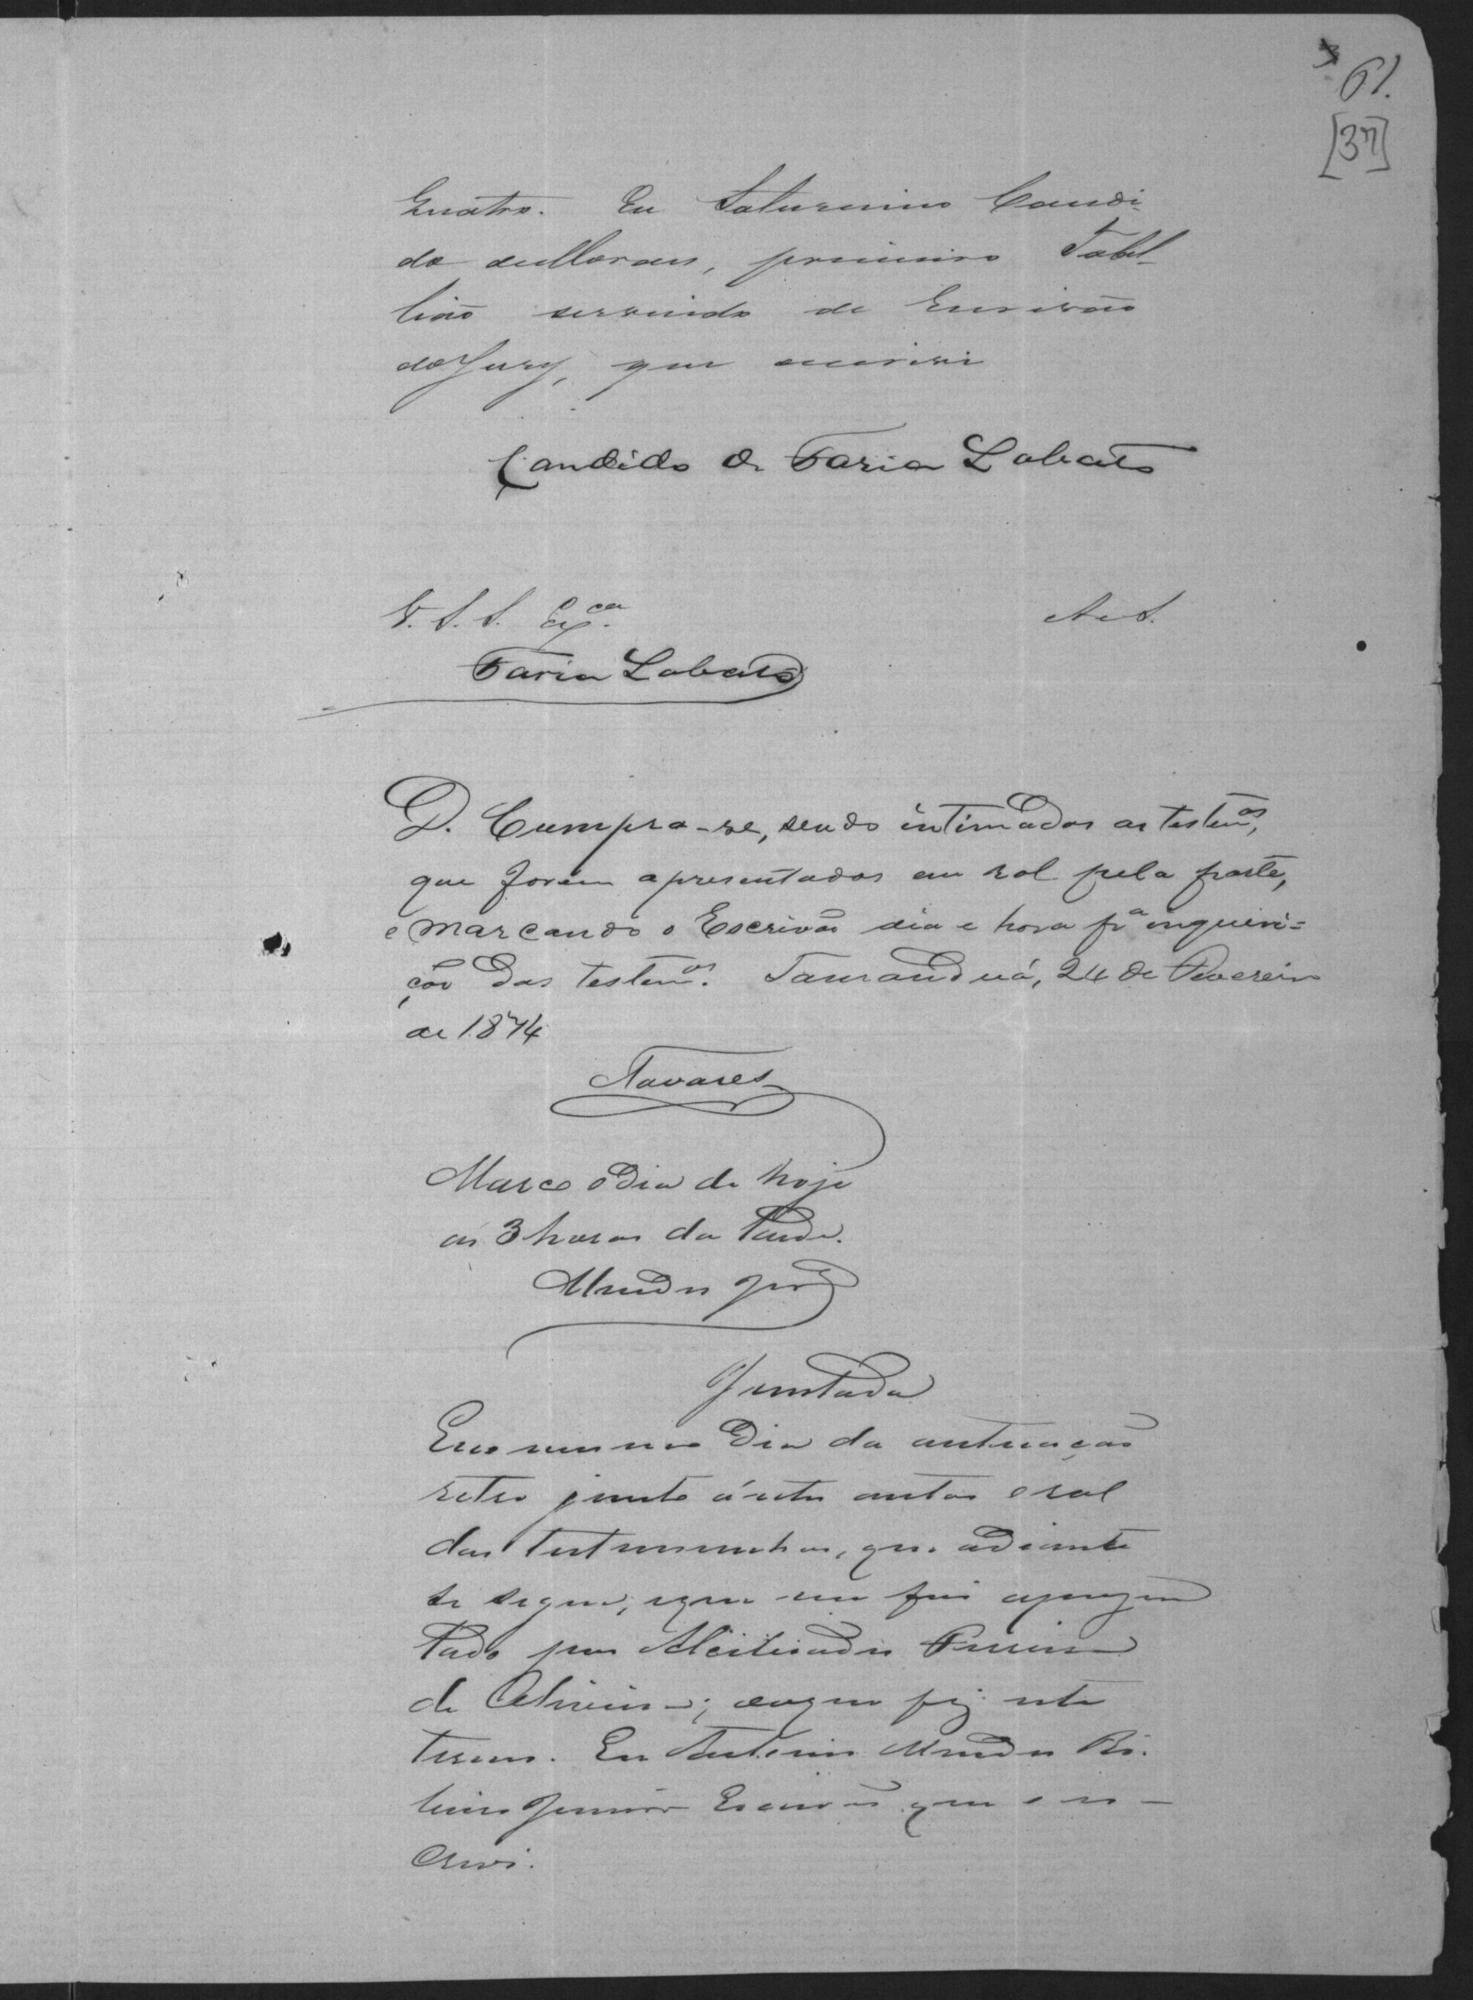 3 61.
[37]
quatro. Eu Saturnino Candi-
do de Moraes, primeiro Tabel-
lião servindo de Escrivão
do Jury, que escrevi
Candido de Faria Lobato
V. S. S. Ex.ca
Faria Lobato
D. Cumpra-se, sendo intimadas as testem.as,
que forem apresentadas em rol pela parte,
e marcando o Escrivão dia e hora p.a inqueri=
ção das testem.as. Tamanduá, 24 de Fevereiro
de 1874
Tavares
Marco o dia de hoje
as 3 horas da tarde.
Mendes Jor
Juntada
E no mesmo dia da autuação
retro junto á estes autos o rol
das testemunhas, que adiante
se segue, e que me foi apresen
tado por Alcibiades Ferreira
de Oliveira; do que fiz este
termo. Eu Antonio Mendes Ri-
beiro Junior Escrivão que o es-
crevi.